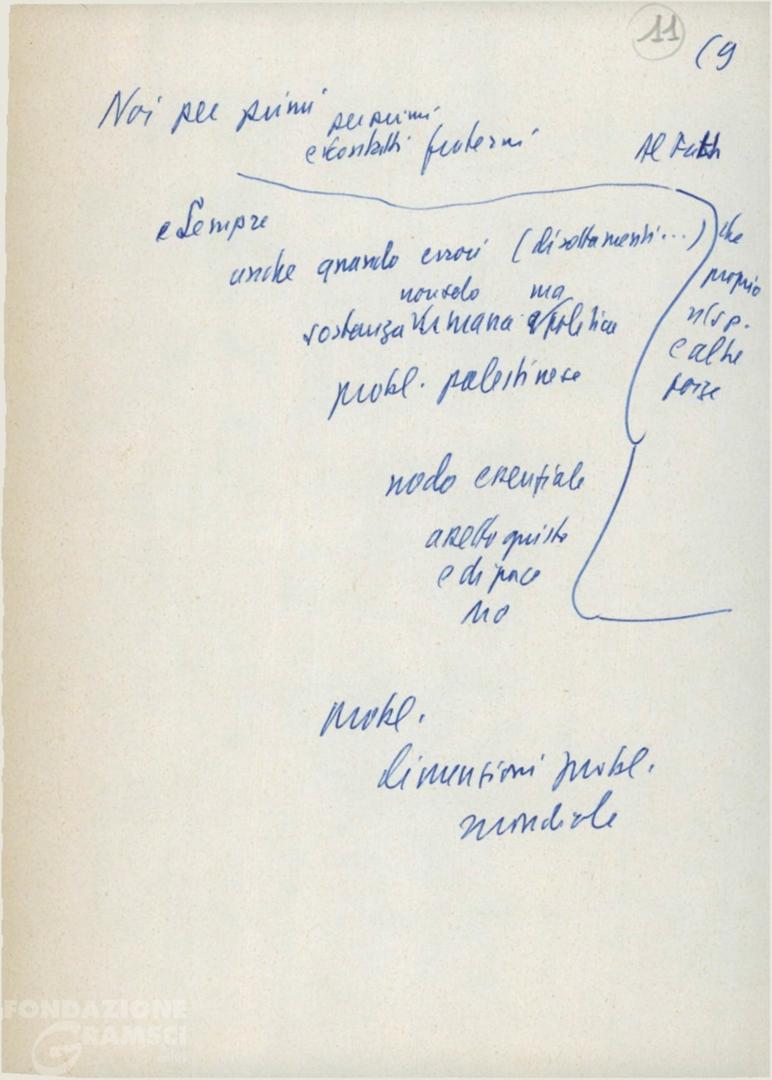 11
(9
Noi per primi
per primi
e contatti fraterni
Al Fatah
e sempre
anche quando errori (dirottamenti...)
che
proprio
risp.
e altre
forze
non solo ma
sostanza umana e politica
probl. palestinese
nodo essenziale
assetto giusto
e di pace
MO
probl.
dimensioni probl.
mondiale
FONDAZIONE
GRAMSCI